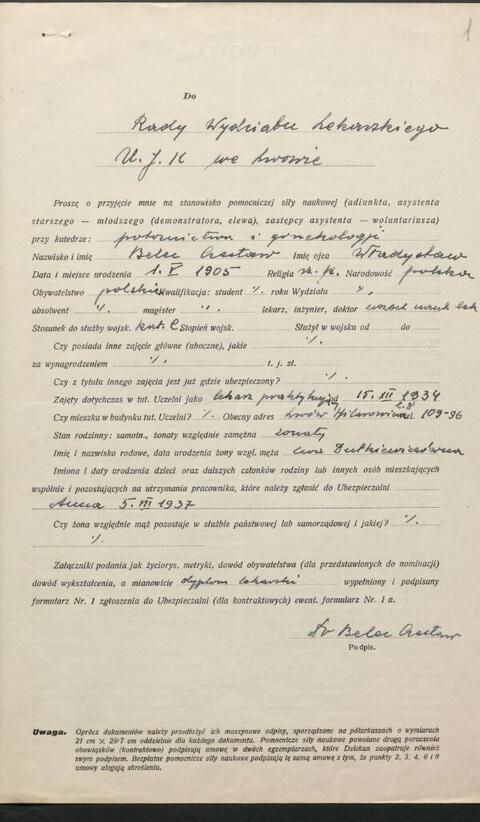 1
Do
Rady Wydziału Lekarskiego
U. J. K we Lwowie
Proszę o przyjęcie mnie na stanowisko pomocniczej siły naukowej (adiunkta, asystenta
starszego — młodszego (demonstratora, elewa), zastępcy asystenta — woluntariusza)
przy katedrze: położnictwa i ginekologji
Nazwisko i imię Belec Czesław Imię ojca Władysław
Data i miejsce urodzenia 1. V 1905 Religja rz. k. Narodowość polska
Obywatelstwo polskie Kwalifikacja: student ·/. roku Wydziału ·/.
absolwent ·/. magister ·/. lekarz, inżynier, doktor wszech nauk lek
Stosunek do służby wojsk. kat. C Stopień wojsk. Służył w wojsku od do
Czy posiada inne zajęcie główne (uboczne), jakie ·/.
za wynagrodzeniem ·/. t. j. zł.
Czy z tytułu innego zajęcia jest już gdzie ubezpieczony? ·/.
Zajęty dotychczas w tut. Uczelni jako lekarz praktykujący 15. III 1934
Czy mieszka w budynku tut. Uczelni? ·/. Obecny adres Lwów tel. 109-96
Stan rodzinny: samotn., żonaty względnie zamężna żonaty
Imię i nazwisko rodowe, data urodzenia żony wzgl. męża Ewa Dutkiewiczówna
Imiona i daty urodzenia dzieci oraz dalszych członków rodziny lub innych osób mieszkających
wspólnie i pozostających na utrzymaniu pracownika, które należy zgłosić do Ubezpieczalni
Anna 5. VII 1937
Czy żona względnie mąż pozostaje w służbie państwowej lub samorządowej i jakiej? ·/.
·/.
Załączniki podania jak życiorys, metryki, dowód obywatelstwa (dla przedstawionych do nominacji)
dowód wykształcenia, a mianowicie dyplom lekarski wypełniony i podpisany
formularz Nr. 1 zgłoszenia do Ubezpieczalni (dla kontraktowych) ewent. formularz Nr. 1 a.
Dr Belec Czesław
Podpis.
Uwaga. Oprócz dokumentów należy przedłożyć ich maszynowe odpisy, sporządzone na półarkuszach o wymiarach
21 cm × 29·7 cm oddzielnie dla każdego dokumentu. Pomocnicze siły naukowe powołane drogą poruczenia
obowiązków (kontraktowo) podpisują umowę w dwóch egzemplarzach, które Dziekan zaopatruje również
swym podpisem. Bezpłatne pomocnicze siły naukowe podpisują tę samą umowę z tym, że punkty 2, 3, 4, 6 i 8
umowy ulegają skreśleniu.